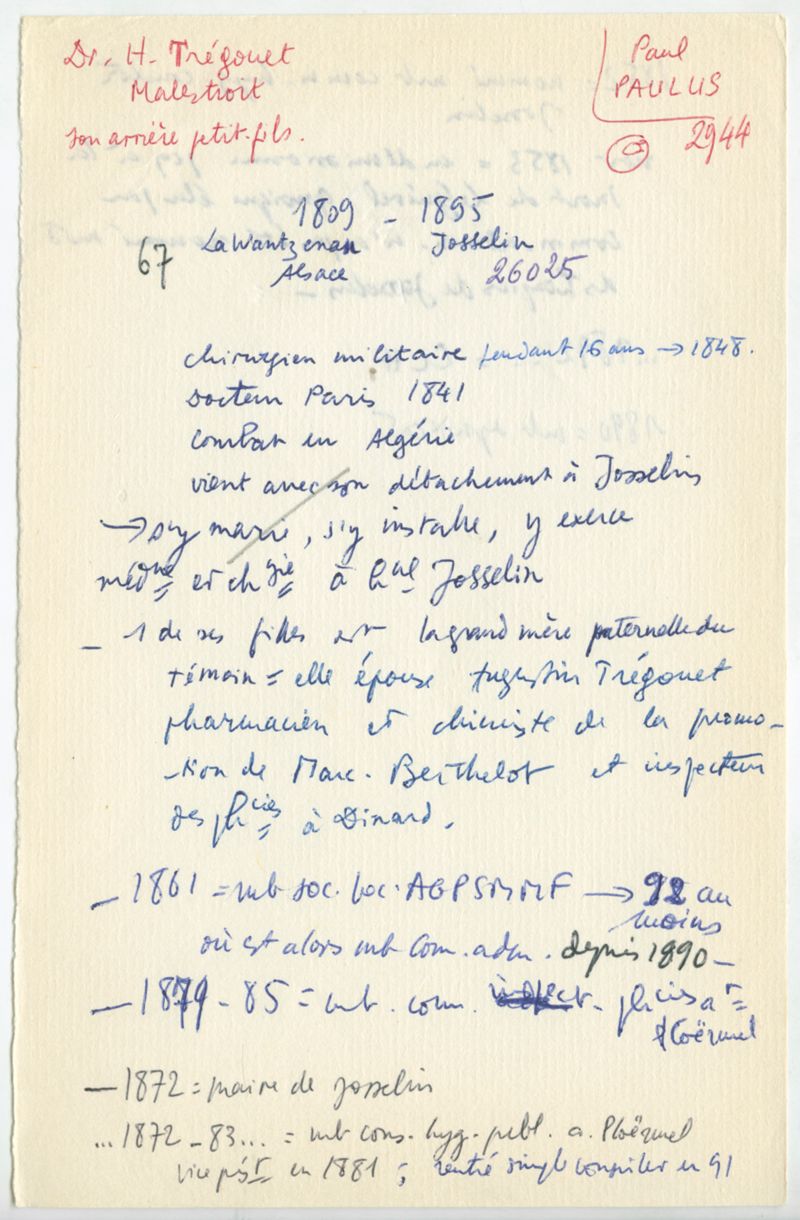 Dr. H. Trégouet
Malestroit
son arrière petit-fils.
Paul
PAULUS
2944
1809 – 1895
La Wantzenau Josselin
67 Alsace 26025
chirurgien militaire pendant 16 ans → 1848.
Docteur Paris 1841
combat en Algérie
vient avec son détachement à Josselin
→ s'y marie, s'y installe, y exerce
médne et chgie à hal Josselin
– 1 de ses filles est la grand mère paternelle du
témoin = elle épouse Augustin Trégouet
pharmacien et chimiste de la promo-
-tion de Marc. Berthelot et inspecteur
des phcies à Dinard.
– 1861 = mb soc. loc. AGPSMMF → 92 au
moins
où est alors mb Com. adm. depuis 1890 –
– 1879 - 85 = mb. com. inspect. phcies at =
Ploërmel
– 1872 = maire de Josselin
... 1872 - 83... = mb cons. hyg. publ. a. Ploërmel
vice pést en 1881 ; rentré simple conseiller en 91